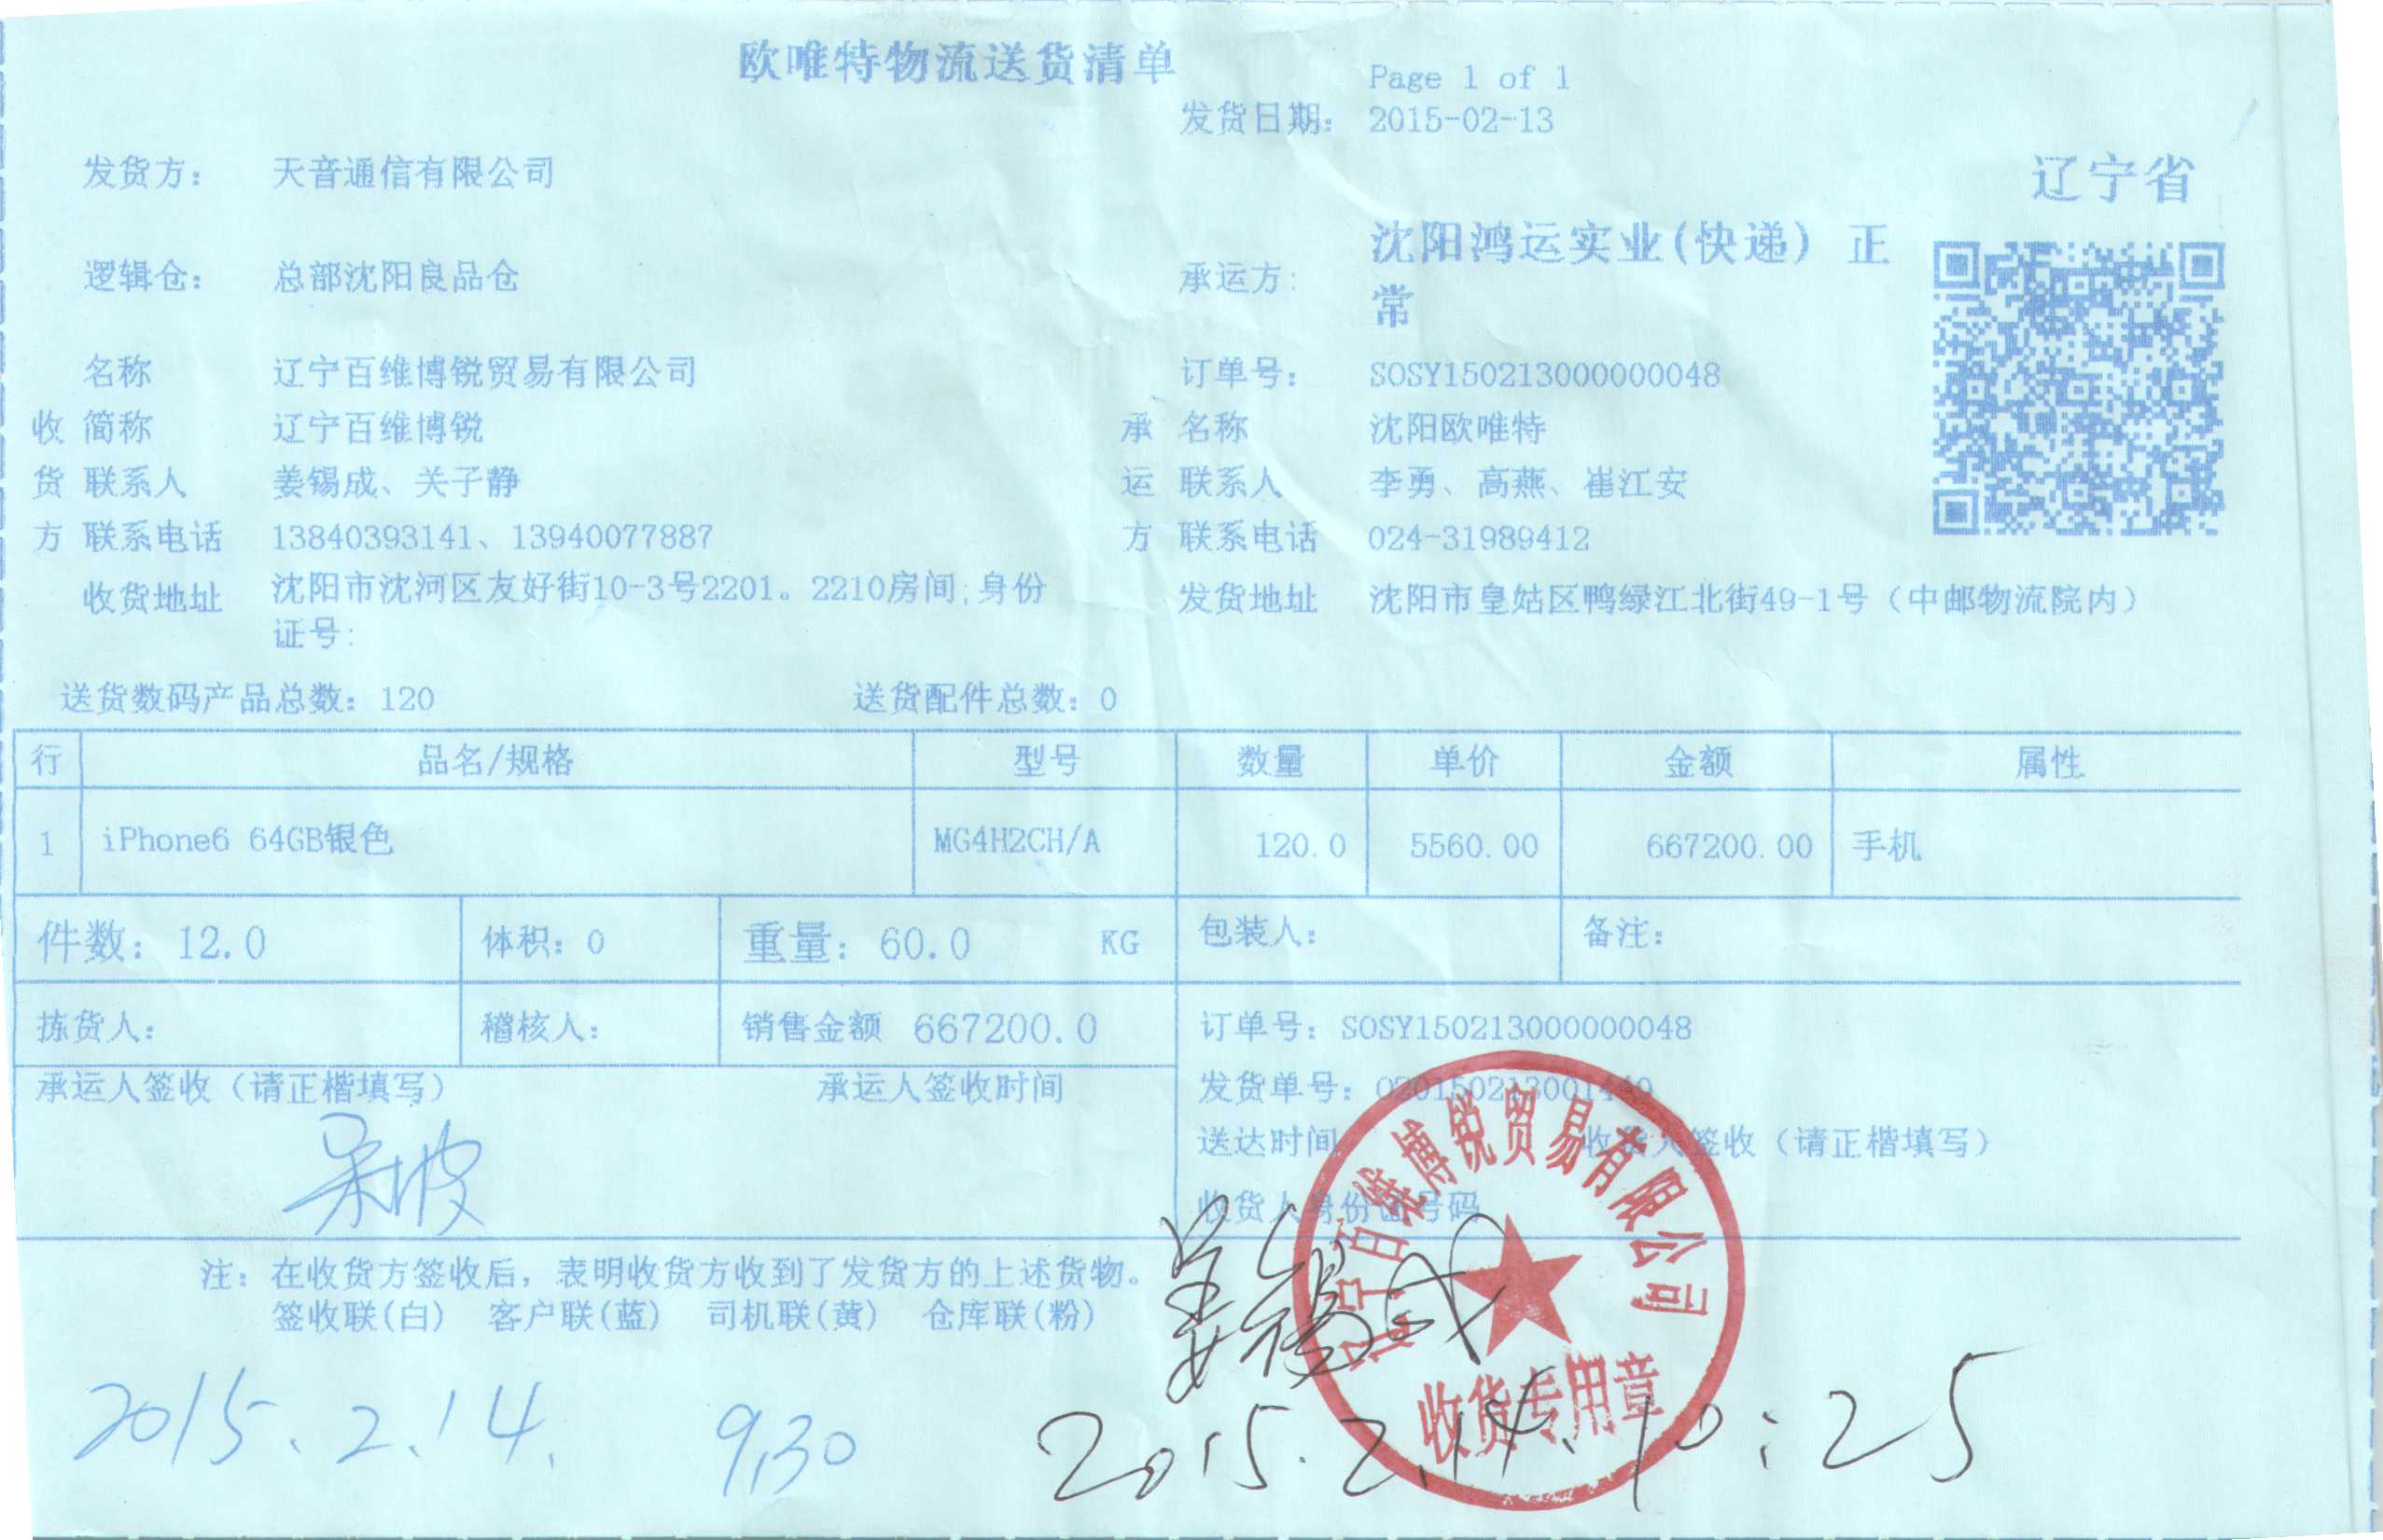 欧唯特物流送货清单
Page 1 of 1
发货日期: 2015-02-13
发货方: 天音通信有限公司
辽宁省
逻辑仓: 总部沈阳良品仓
承运方: 沈阳鸿运实业(快递) 正
常
名称 辽宁百维博锐贸易有限公司 订单号: SOSY150213000000048
收 简称 辽宁百维博锐 承 名称 沈阳欧唯特
货 联系人 姜锡成、关子静 运 联系人 李勇、高燕、崔江安
方 联系电话 13840393141、13940077887 方 联系电话 024-31989412
收货地址 沈阳市沈河区友好街10-3号2201。2210房间;身份
证号:
发货地址 沈阳市皇姑区鸭绿江北街49-1号（中邮物流院内）
送货数码产品总数: 120 送货配件总数: 0
行 品名/规格 型号 数量 单价 金额 属性
1 iPhone6 64GB银色 MG4H2CH/A 120.0 5560.00 667200.00 手机
件数: 12.0 体积: 0 重量: 60.0 KG 包装人: 备注:
拣货人: 稽核人: 销售金额 667200.0 订单号: SOSY150213000000048
承运人签收（请正楷填写） 承运人签收时间 发货单号: O20150213001449
送达时间 收货人签收（请正楷填写）
收货人身份证号码
注: 在收货方签收后，表明收货方收到了发货方的上述货物。
签收联(白) 客户联(蓝) 司机联(黄) 仓库联(粉)
姜锡成
辽宁百维博锐贸易有限公司
收货专用章
2015.2.14. 9,30
2015.2.14. 10:25